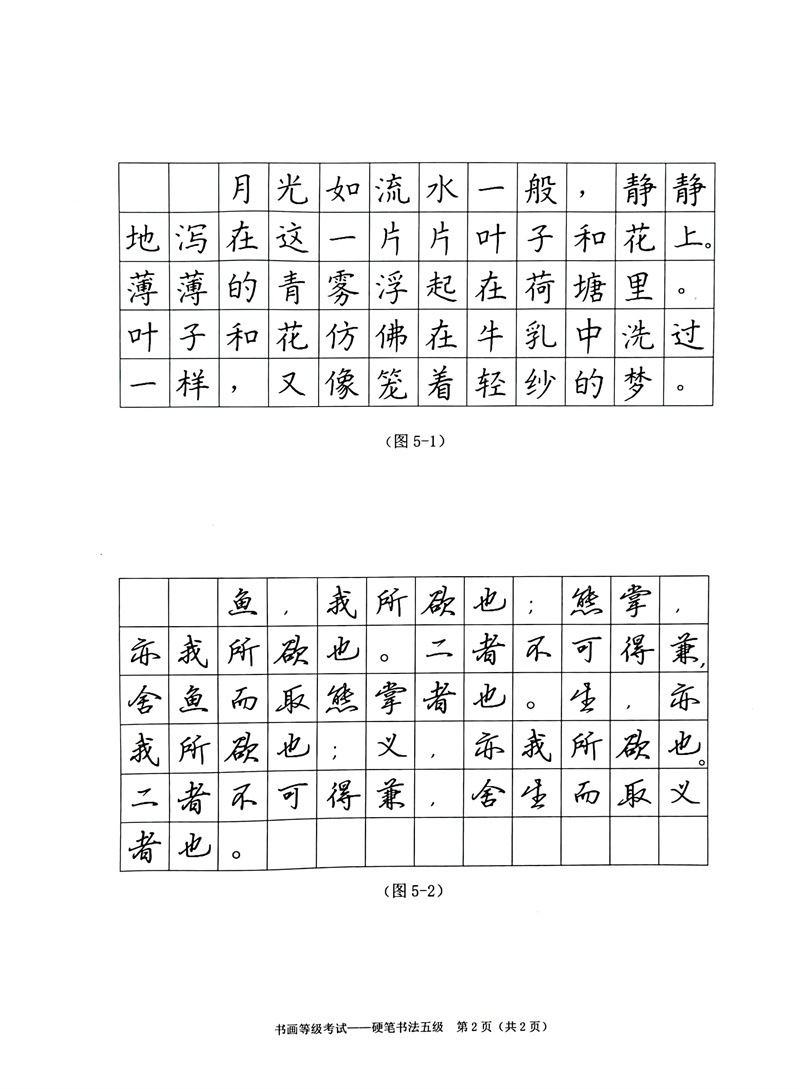 月光如流水一般，静静
地泻在这一片片叶子和花上。
薄薄的青雾浮起在荷塘里。
叶子和花仿佛在牛乳中洗过
一样，又像笼着轻纱的梦。
（图 5-1）
鱼，我所欲也；熊掌，
亦我所欲也。二者不可得兼，
舍鱼而取熊掌者也。生，亦
我所欲也；义，亦我所欲也。
二者不可得兼，舍生而取义
者也。
（图 5-2）
书画等级考试——硬笔书法五级 第 2 页（共 2 页）